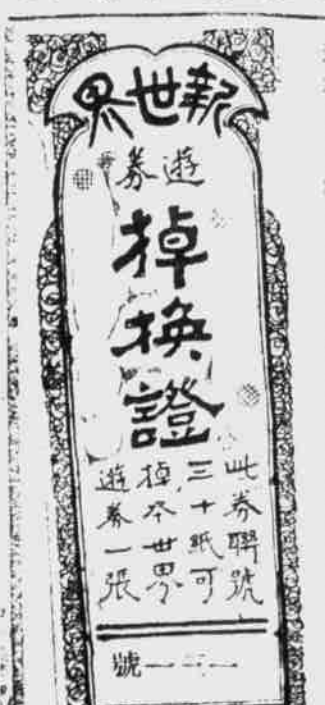 新世界
遊券
掉换證
此券聨號
三十紙可
掉本世界
遊券一張
號